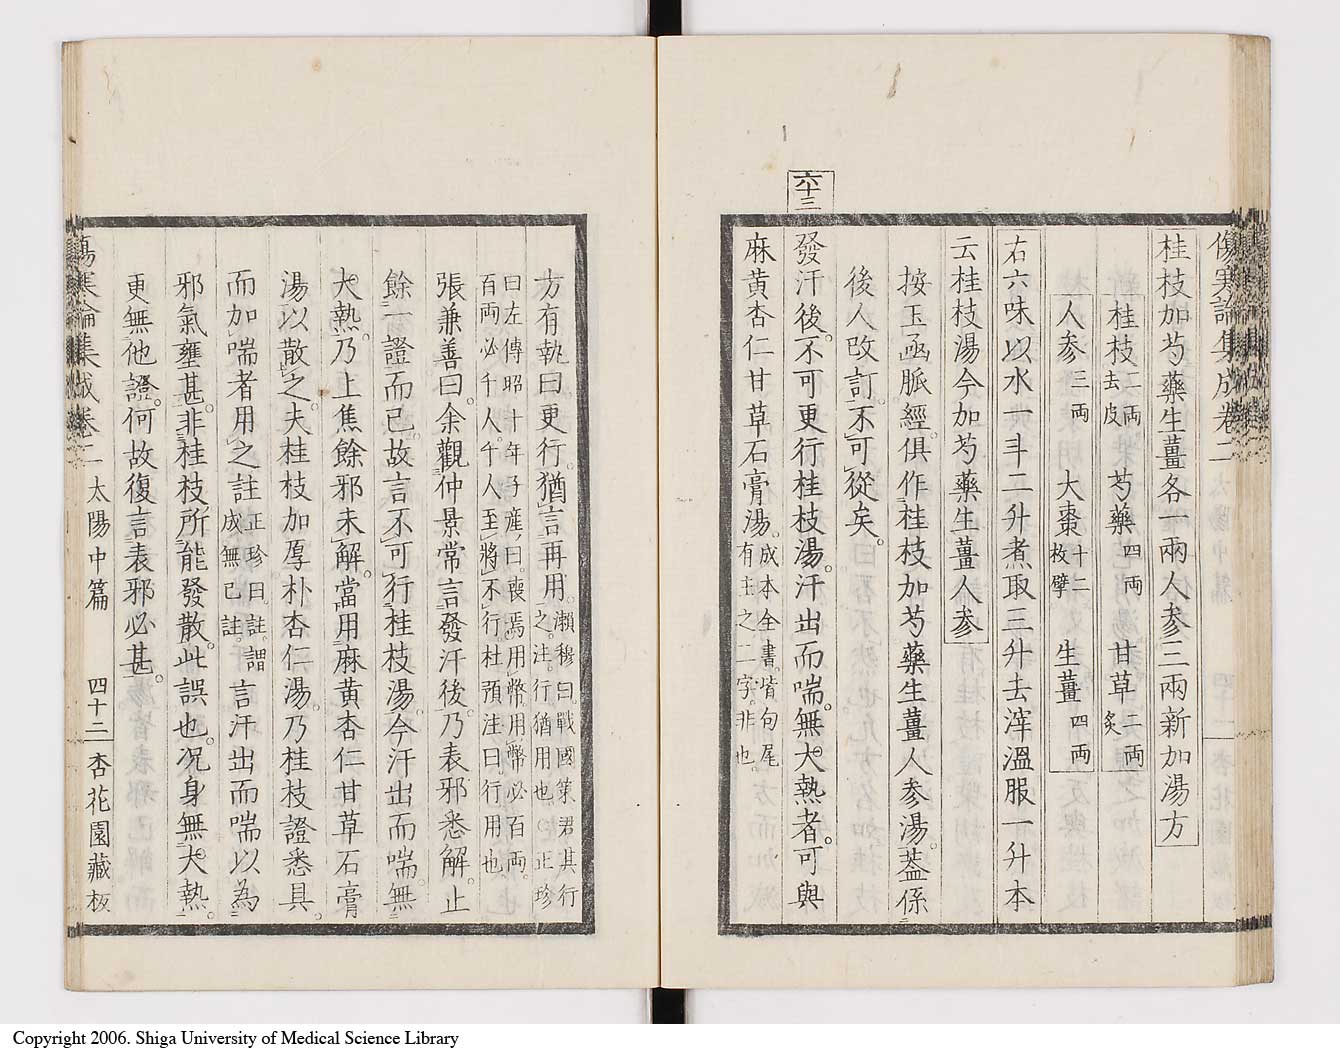 傷寒論集成卷二
桂枝加芍藥生薑各一兩人參三兩新加湯方
桂枝二兩去皮 芍藥四兩 甘草二兩炙
人參三兩 大棗十二枚擘 生薑四兩
右六味以水一斗二升煮取三升去滓溫服一升本
云桂枝湯今加芍藥生薑人參
按玉函脈經。俱作桂枝加芍藥生薑人參湯。蓋係
後人改訂。不可從矣。
六十三
發汗後。不可更行桂枝湯。汗出而喘。無大熱者。可與
麻黃杏仁甘草石膏湯。成本全書。皆句尾有主之二字。非也。
方有執曰。更行。猶言再用。瀨穆曰。戰國策。君其行之。注。行猶用也。○正珍
曰。左傳昭十年。子產曰。喪焉用幣。用幣必百兩。
百兩必千人。千人至。將不行。杜預注曰。行用也。
張兼善曰。余觀仲景常言發汗後。乃表邪悉解。止
餘一證而已。故言不可行桂枝湯。今汗出而喘。無
大熱。乃上焦餘邪未解。當用麻黃杏仁甘草石膏
湯以散之。夫桂枝加厚朴杏仁湯。乃桂枝證悉具。
而加喘者用之註正珍曰。註。謂成無己註。言汗出而喘以為
邪氣壅甚。非桂枝所能發散。此誤也。況身無大熱。
更無他證。何故復言表邪必甚。
傷寒論集成卷二 太陽中篇 四十二 杏花園藏板
Copyright 2006. Shiga University of Medical Science Library